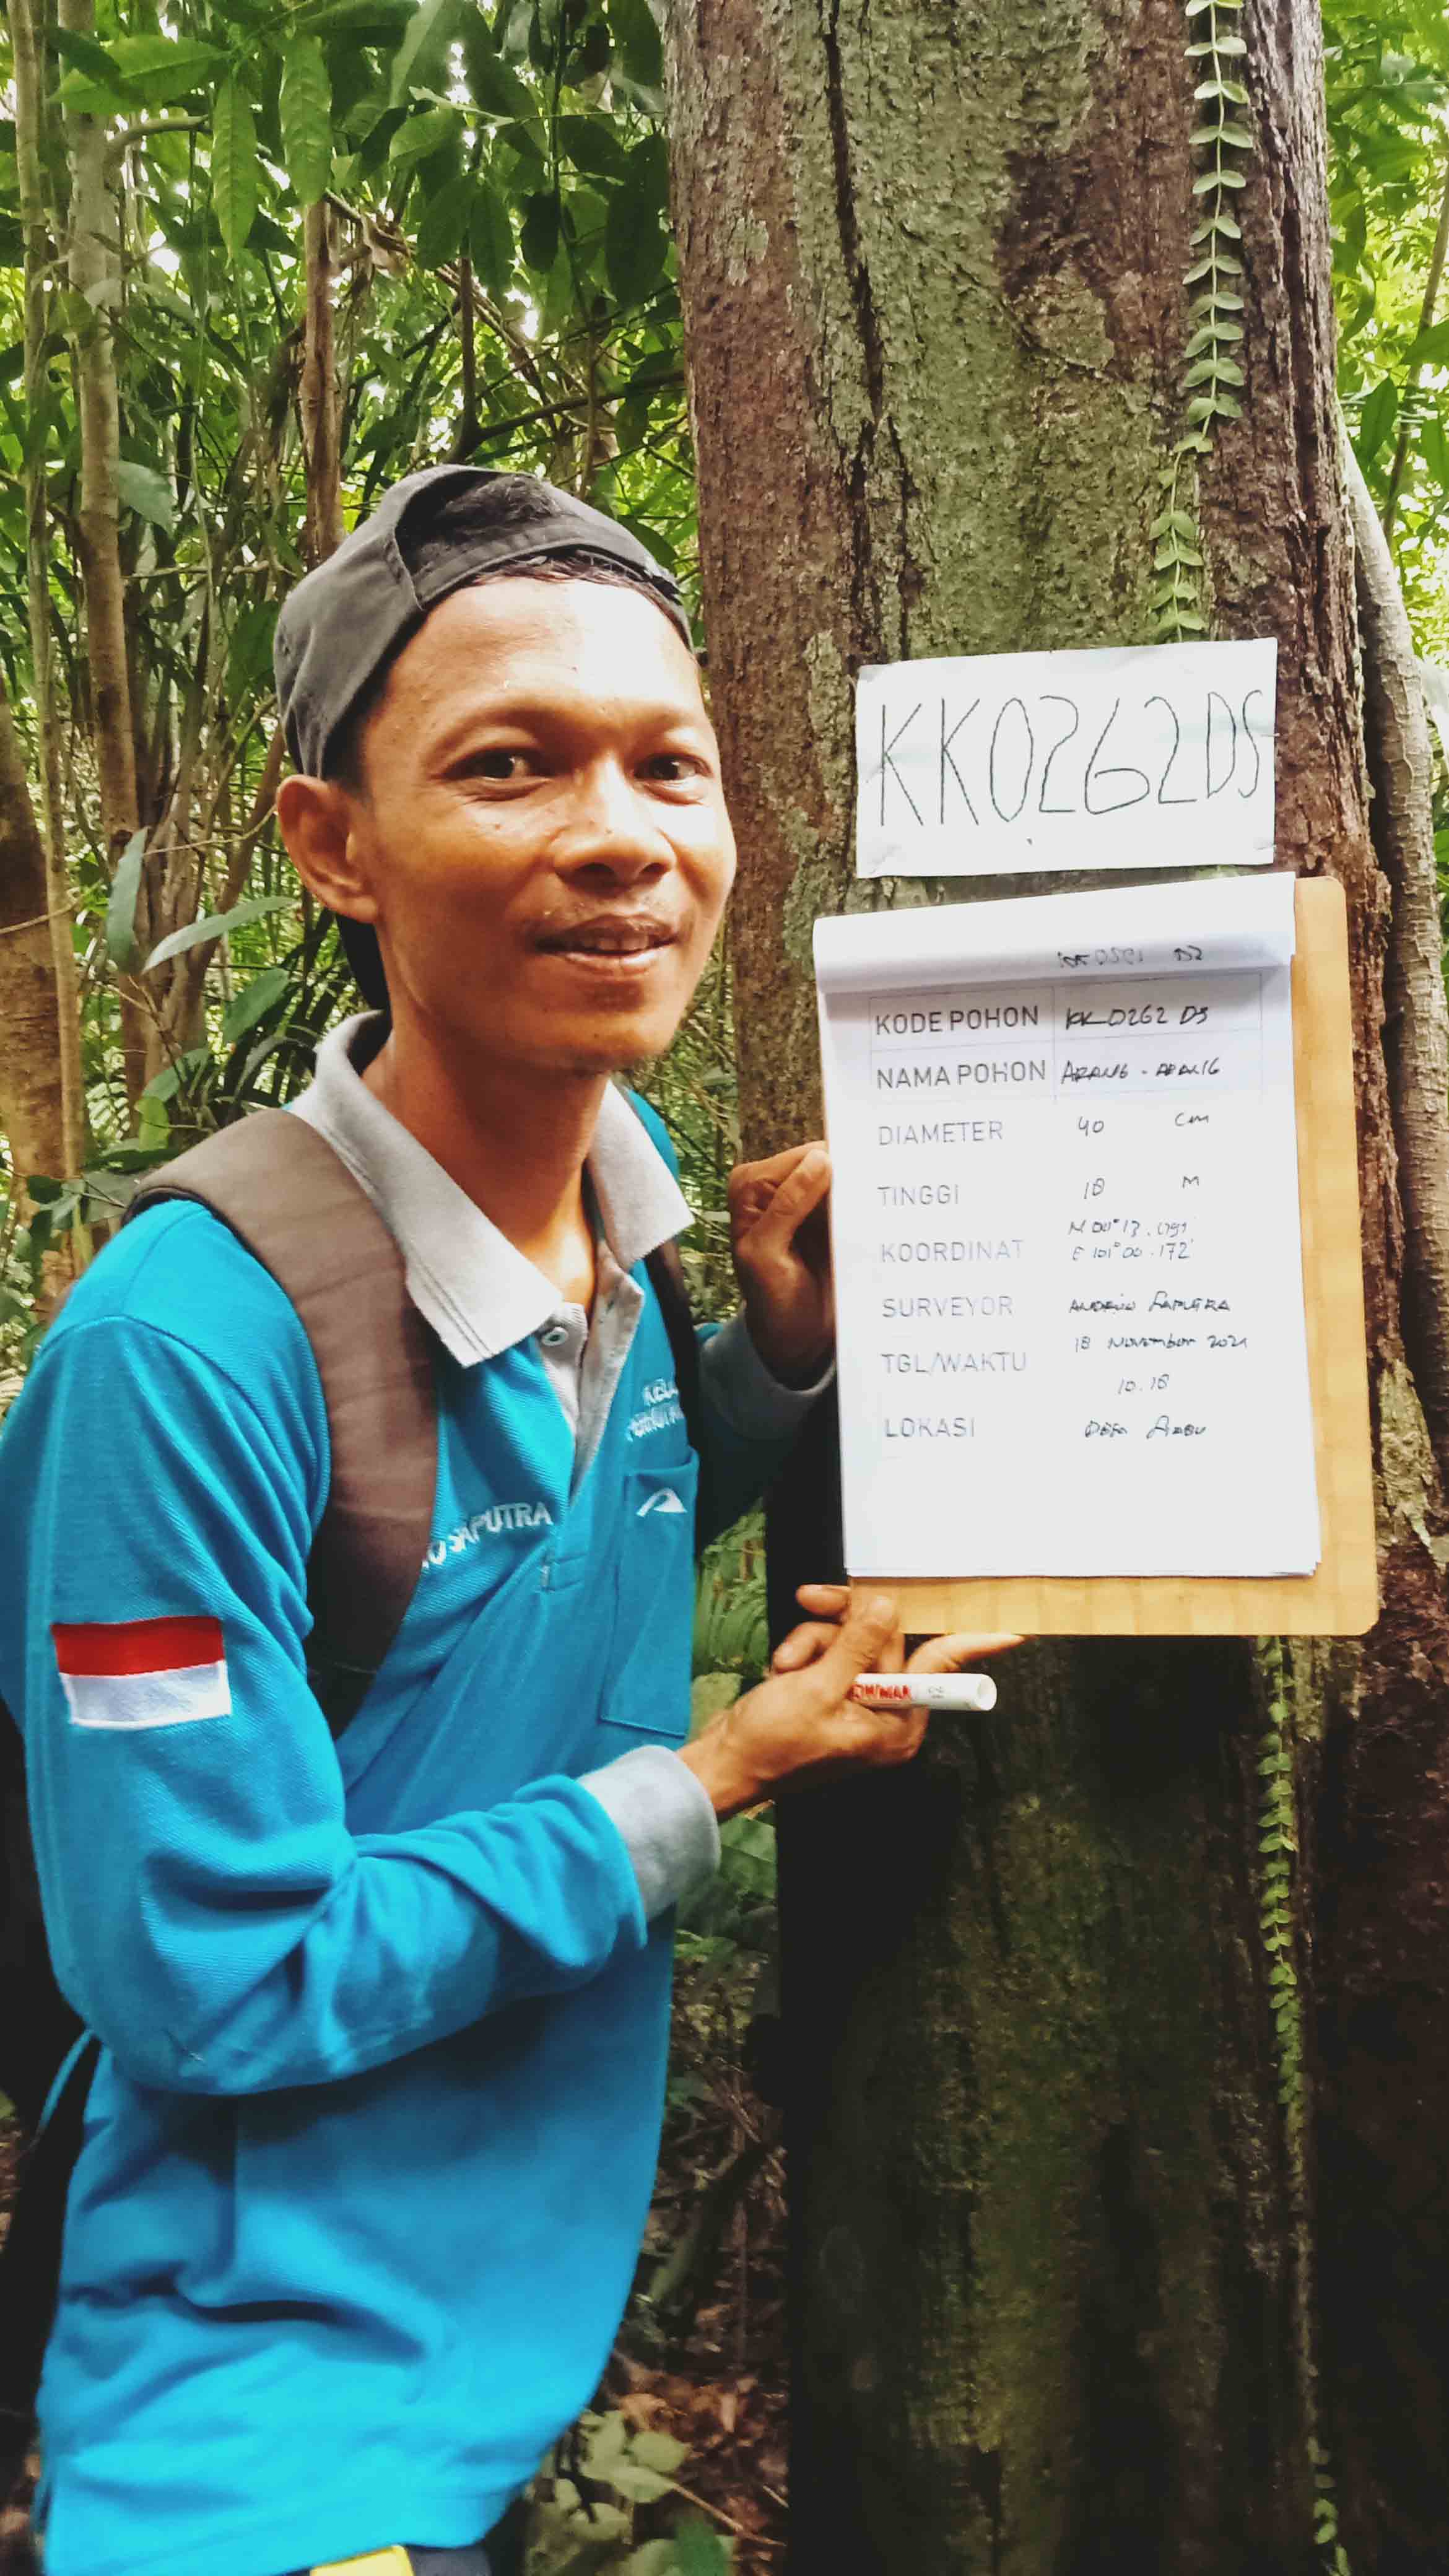 KK0262DS
KODE POHON KK 0262 DS
NAMA POHON ARANG - ARANG
DIAMETER 40 cm
TINGGI 18 M
KOORDINAT N 00° 13.
E 101° 00.172'
SURVEYOR SAPUTRA
TGL/WAKTU 18 November 2021
10.18
LOKASI DESA
SAPUTRA